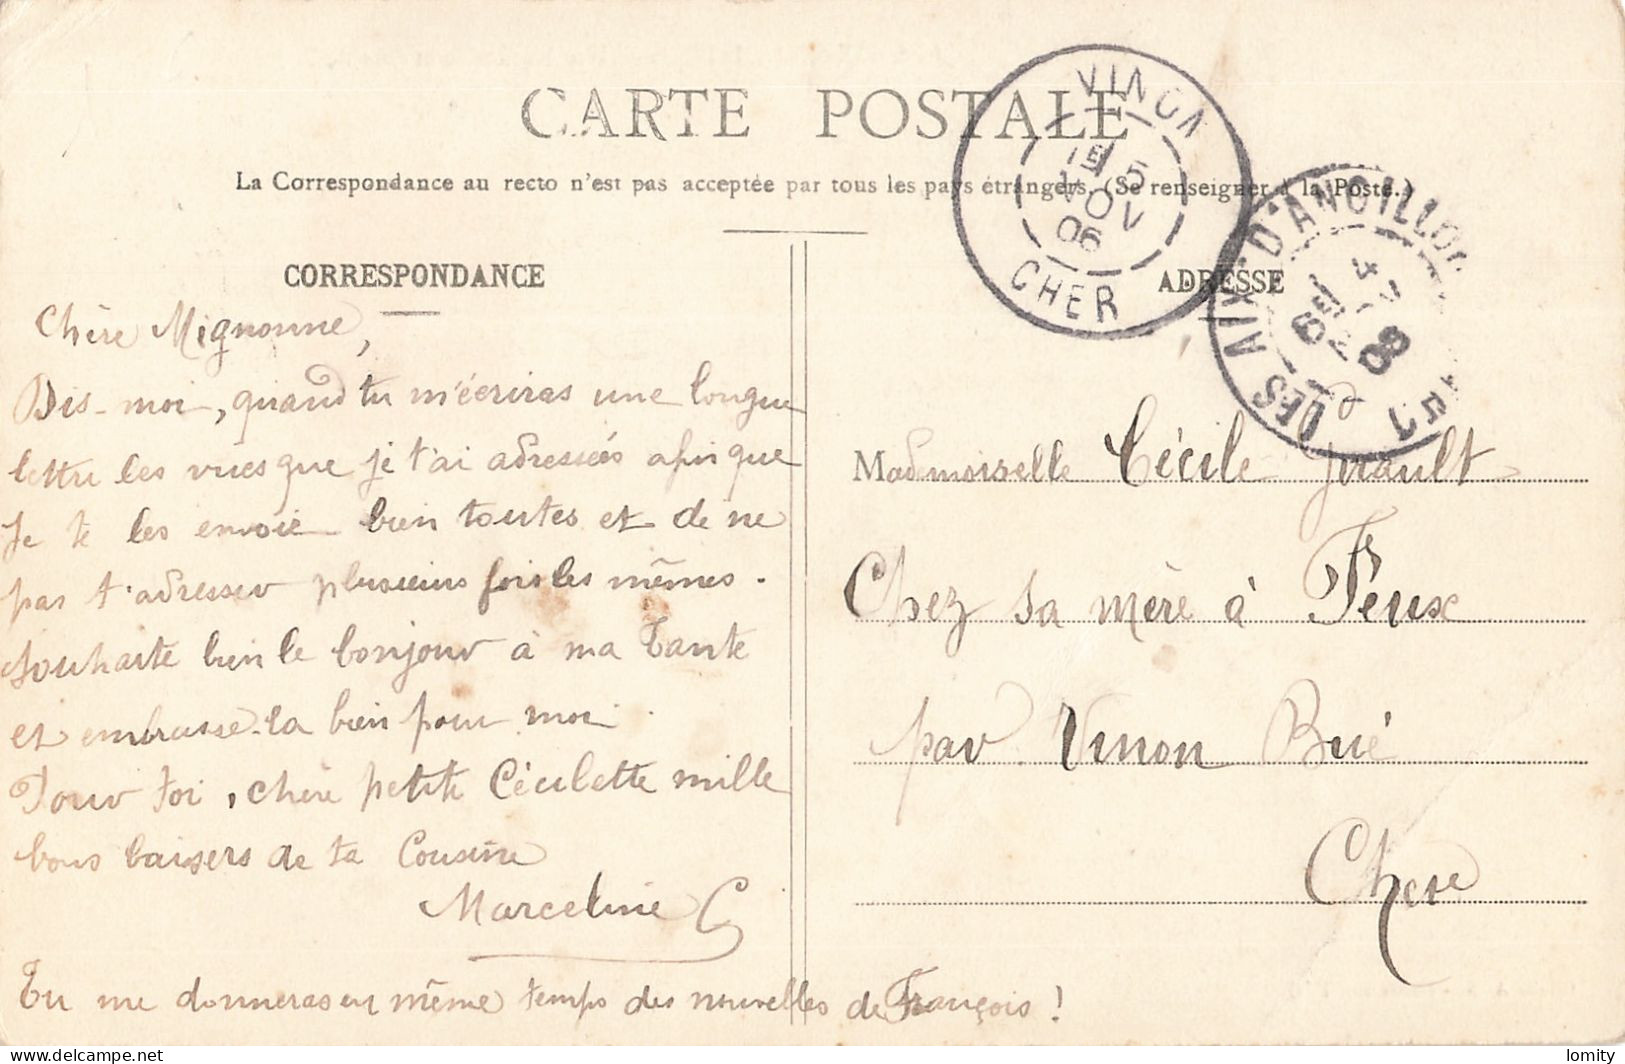 CARTE POSTALE
La Correspondance au recto n'est pas acceptée par tous les pays étrangers. (Se renseigner à la Poste.)
CORRESPONDANCE
Chère Mignonne,
Dis-moi, quand tu m'écriras une longue
lettre les vues que je t'ai adressées afin que
je te les envoie bien toutes et de ne
pas t'adresser plusieurs fois les mêmes.
Souhaite bien le bonjour à ma Tante
et embrasse-la bien pour moi.
Pour toi, chère petite Cécilette mille
bons baisers de ta Cousine
Marceline G
Tu me donneras en même temps des nouvelles de François !
ADRESSE
Mademoiselle Cécile
Chez sa mère à Feux
par Vinon Bué
Cher
CHER
5
NOV
06
LES AIX-D'ANGILLON
delcampe.net
lomity